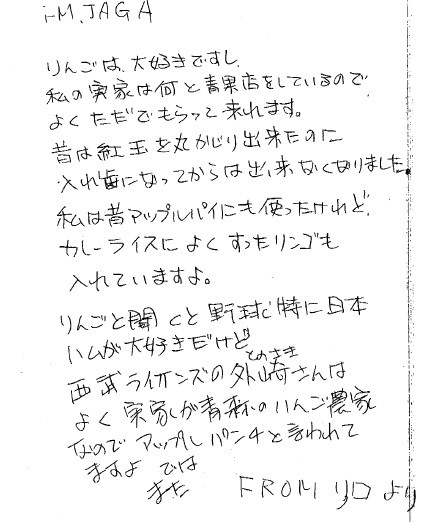 i-M.JAGA
りんごは、大好きですし、
私の実家は何と青果店をしているので、
よくただでもらって来れます。
昔は紅玉を丸かじり出来たのに
入れ歯になってからは出来なくなりました。
私は昔アップルパイにも使ったけれど、
カレーライスによくすったリンゴも
入れていますよ。
りんごと聞くと野球で特に日本
ハムが大好きだけど
西武ライオンズの外崎さんは
とのさき
よく実家が青森のりんご農家
なのでアップルパンチと言われて
ますよ では
また FROM リロより